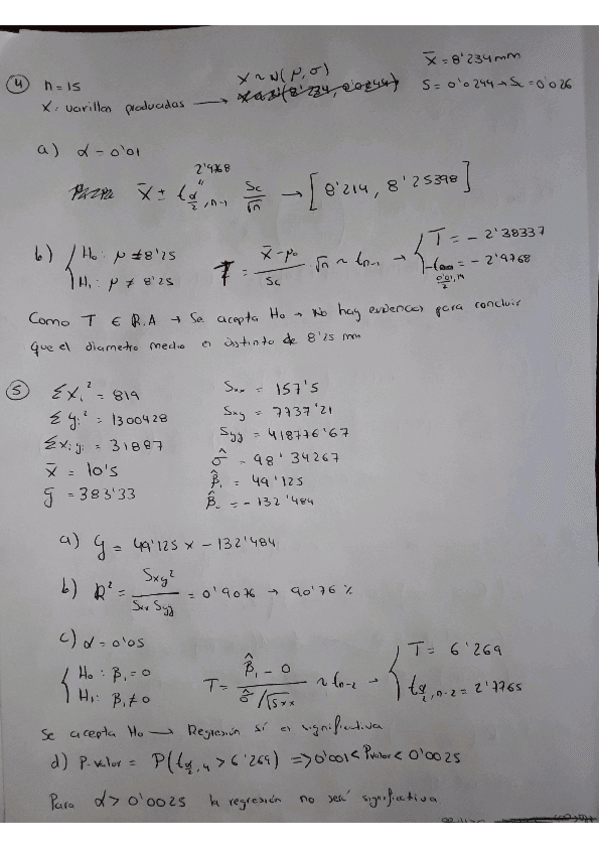 ④ n = 15
X̄ = 8'234 mm
X = varillas producidas → X ~ N(μ, σ)
S = 0'0244 → Sc = 0'026
a) α = 0'01
X̄ ± t α/2, n-1 Sc/√n → [8'214, 8'25398]
2'9768
b) { H₀: μ = 8'25
H₁: μ ≠ 8'25
T = (X̄ - μ₀)/Sc √n ~ t n-1 → { T = - 2'38337
- t 0'01/2, 14 = - 2'9768
Como T ∈ R.A → Se acepta H₀ → No hay evidencias para concluir
que el diametro medio es distinto de 8'25 mm
⑤ Σxi² = 819
Σyi² = 1300428
Σxiyi = 31887
x̄ = 10'5
ȳ = 383'33
Sxx = 157'5
Sxy = 7737'21
Syy = 418776'67
σ̂ = 98'34267
β̂₁ = 49'125
β̂₀ = - 132'484
a) y = 49'125 x - 132'484
b) R² = Sxy²/(Sxx Syy) = 0'9076 → 90'76 %
c) α = 0'05
{ H₀: β₁ = 0
H₁: β₁ ≠ 0
T = (β̂₁ - 0)/(σ̂/√Sxx) ~ t n-2 → { T = 6'269
t α/2, n-2 = 2'7765
Se acepta H₀ → Regresión sí es significativa
d) P-valor = P(t α/2, 4 > 6'269) => 0'001 < Pvalor < 0'0025
Para α > 0'0025 la regresión no será significativa